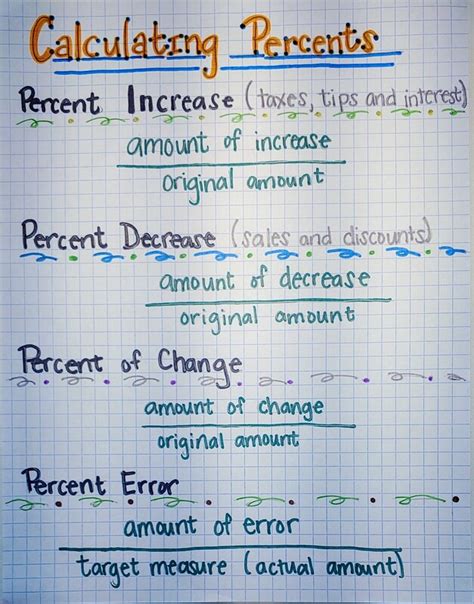 Calculating Percents
Percent Increase (taxes, tips and interest)
amount of increase
original amount
Percent Decrease (sales and discounts)
amount of decrease
original amount
Percent of Change
amount of change
original amount
Percent Error
amount of error
target measure (actual amount)